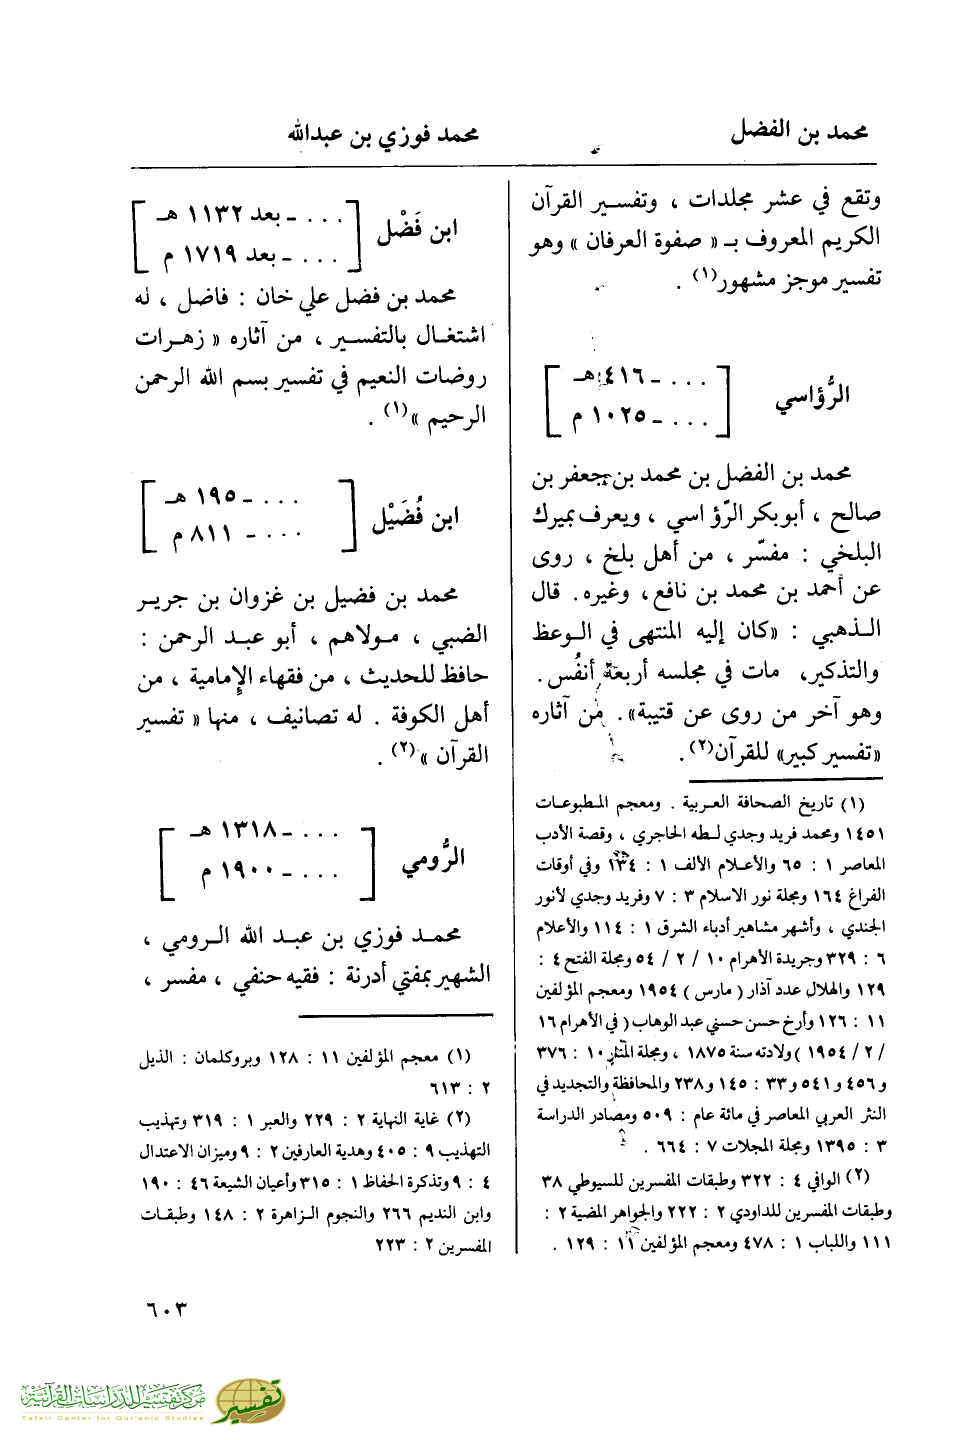 محمد بن الفضل
محمد فوزي بن عبدالله
وتقع في عشر مجلدات ، وتفسير القرآن
الكريم المعروف بـ « صفوة العرفان » وهو
تفسير موجز مشهور(١) .
الرُّؤاسي
[ . . . ـ ٤١٦ هـ
. . . ـ ١٠٢٥ م ]
محمد بن الفضل بن محمد بن جعفر بن
صالح ، أبو بكر الرّؤاسي ، ويعرف بميرك
البلخي : مفسّر ، من أهل بلخ ، روى
عن أحمد بن محمد بن نافع ، وغيره . قال
الذهبي : «كان إليه المنتهى في الوعظ
والتذكير، مات في مجلسه أربعة أنفُس .
وهو آخر من روى عن قتيبة» . من آثاره
«تفسير كبير» للقرآن(٢) .
(١) تاريخ الصحافة العربية . ومعجم المطبوعات
١٤٥١ ومحمد فريد وجدي لطه الحاجري ، وقصة الأدب
المعاصر ١ : ٦٥ والأعلام الألف ١ : ١٣٤ وفي أوقات
الفراغ ١٦٤ ومجلة نور الاسلام ٣ : ٧ وفريد وجدي لأنور
الجندي ، وأشهر مشاهير أدباء الشرق ١ : ١١٤ والأعلام
٦ : ٣٢٩ وجريدة الأهرام ١٠ / ٢ / ٥٤ ومجلة الفتح ٤ :
١٢٩ والهلال عدد آذار ( مارس ) ١٩٥٤ ومعجم المؤلفين
١١ : ١٢٦ وأرخ حسن حسني عبد الوهاب ( في الأهرام ١٦
/ ٢ / ١٩٥٤ ) ولادته سنة ١٨٧٥ ، ومجلة المنار ١٠ : ٣٧٦
و٤٥٦ و٥٤١ و٣٣ : ١٤٥ و٢٣٨ والمحافظة والتجديد في
النثر العربي المعاصر في مائة عام : ٥٠٩ ومصادر الدراسة
٣ : ١٣٩٥ ومجلة المجلات ٧ : ٦٦٤ .
(٢) الوافي ٤ : ٣٢٢ وطبقات المفسرين للسيوطي ٣٨
وطبقات المفسرين للداودي ٢ : ٢٢٢ والجواهر المضية ٢ :
١١١ واللباب ١ : ٤٧٨ ومعجم المؤلفين ١١ : ١٢٩ .
ابن فَضْل
[ . . . ـ بعد ١١٣٢ هـ
. . . ـ بعد ١٧١٩ م ]
محمد بن فضل علي خان : فاضل ، له
اشتغال بالتفسير ، من آثاره « زهرات
روضات النعيم في تفسير بسم الله الرحمن
الرحيم »(١) .
ابن فُضَيْل
[ . . . ـ ١٩٥ هـ
. . . ـ ٨١١ م ]
محمد بن فضيل بن غزوان بن جرير
الضبي ، مولاهم ، أبو عبد الرحمن :
حافظ للحديث ، من فقهاء الإمامية ، من
أهل الكوفة . له تصانيف ، منها « تفسير
القرآن »(٢) .
الرُّومي
[ . . . ـ ١٣١٨ هـ
. . . ـ ١٩٠٠ م ]
محمد فوزي بن عبد الله الرومي ،
الشهير بمفتي أدرنة : فقيه حنفي ، مفسر ،
(١) معجم المؤلفين ١١ : ١٢٨ وبروكلمان : الذيل
٢ : ٦١٣
(٢) غاية النهاية ٢ : ٢٢٩ والعبر ١ : ٣١٩ وتهذيب
التهذيب ٩ : ٤٠٥ وهدية العارفين ٢ : ٩ وميزان الاعتدال
٤ : ٩ وتذكرة الحفاظ ١ : ٣١٥ وأعيان الشيعة ٤٦ : ١٩٠
وابن النديم ٢٦٦ والنجوم الزاهرة ٢ : ١٤٨ وطبقات
المفسرين ٢ : ٢٢٣
٦٠٣
مركز تفسير للدراسات القرآنية
Tafsir Center for Qur'anic Studies
تفسير